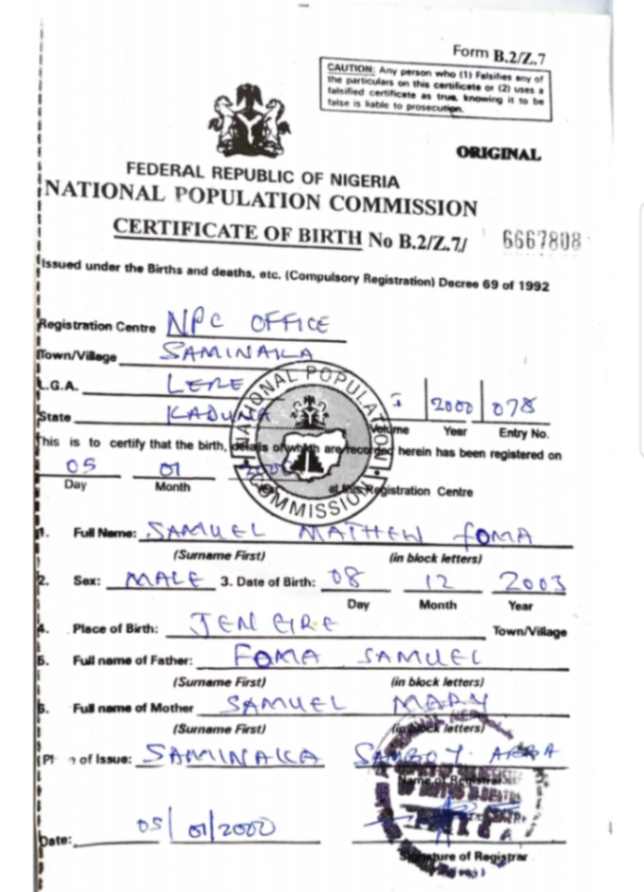 Form B.2/Z.7
CAUTION: Any person who (1) Falsifies any of
the particulars on this certificate or (2) uses a
falsified certificate as true, knowing it to be
false is liable to prosecution.
ORIGINAL
FEDERAL REPUBLIC OF NIGERIA
NATIONAL POPULATION COMMISSION
CERTIFICATE OF BIRTH No B.2/Z.7/ 6667808
Issued under the Births and deaths, etc. (Compulsory Registration) Decree 69 of 1992
Registration Centre NPC OFFICE
Town/Village SAMINAKA
L.G.A. LERE
State KADUNA
I 2000 078
Volume Year Entry No.
NATIONAL POPULATION COMMISSION
This is to certify that the birth, details of which are recorded herein has been registered on
05 01 2000
Day Month at this Registration Centre
1. Full Name: SAMUEL MATHEW FOMA
(Surname First) (in block letters)
2. Sex: MALE 3. Date of Birth: 08 12 2003
Day Month Year
4. Place of Birth: JEN GIRE
Town/Village
5. Full name of Father: FOMA SAMUEL
(Surname First) (in block letters)
6. Full name of Mother SAMUEL MARY
(Surname First) (in block letters)
of Issue: SAMINAKA SAMBO Y. ABBA
Name of Registrar
Date: 05/01/2000
Signature of Registrar